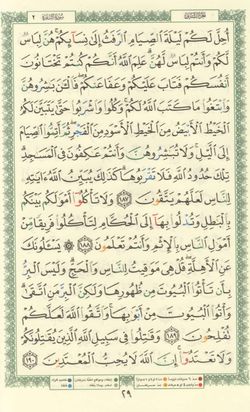 أُحِلَّ لَكُمْ لَيْلَةَ ٱلصِّيَامِ ٱلرَّفَثُ إِلَىٰ نِسَآئِكُمْ هُنَّ لِبَاسٌ
لَّكُمْ وَأَنتُمْ لِبَاسٌ لَّهُنَّ عَلِمَ ٱللَّهُ أَنَّكُمْ كُنتُمْ تَخْتَانُونَ
أَنفُسَكُمْ فَتَابَ عَلَيْكُمْ وَعَفَا عَنكُمْ فَٱلْـَٰٔنَ بَٰشِرُوهُنَّ
وَٱبْتَغُوا۟ مَا كَتَبَ ٱللَّهُ لَكُمْ وَكُلُوا۟ وَٱشْرَبُوا۟ حَتَّىٰ يَتَبَيَّنَ لَكُمُ
ٱلْخَيْطُ ٱلْأَبْيَضُ مِنَ ٱلْخَيْطِ ٱلْأَسْوَدِ مِنَ ٱلْفَجْرِ ثُمَّ أَتِمُّوا۟ ٱلصِّيَامَ
إِلَى ٱلَّيْلِ وَلَا تُبَٰشِرُوهُنَّ وَأَنتُمْ عَٰكِفُونَ فِى ٱلْمَسَٰجِدِ
تِلْكَ حُدُودُ ٱللَّهِ فَلَا تَقْرَبُوهَا كَذَٰلِكَ يُبَيِّنُ ٱللَّهُ ءَايَٰتِهِۦ
لِلنَّاسِ لَعَلَّهُمْ يَتَّقُونَ ١٨٧ وَلَا تَأْكُلُوٓا۟ أَمْوَٰلَكُم بَيْنَكُم
بِٱلْبَٰطِلِ وَتُدْلُوا۟ بِهَآ إِلَى ٱلْحُكَّامِ لِتَأْكُلُوا۟ فَرِيقًا مِّنْ
أَمْوَٰلِ ٱلنَّاسِ بِٱلْإِثْمِ وَأَنتُمْ تَعْلَمُونَ ١٨٨ يَسْـَٔلُونَكَ
عَنِ ٱلْأَهِلَّةِ قُلْ هِىَ مَوَٰقِيتُ لِلنَّاسِ وَٱلْحَجِّ وَلَيْسَ ٱلْبِرُّ
بِأَن تَأْتُوا۟ ٱلْبُيُوتَ مِن ظُهُورِهَا وَلَٰكِنَّ ٱلْبِرَّ مَنِ ٱتَّقَىٰ
وَأْتُوا۟ ٱلْبُيُوتَ مِنْ أَبْوَٰبِهَا وَٱتَّقُوا۟ ٱللَّهَ لَعَلَّكُمْ
تُفْلِحُونَ ١٨٩ وَقَٰتِلُوا۟ فِى سَبِيلِ ٱللَّهِ ٱلَّذِينَ يُقَٰتِلُونَكُمْ
وَلَا تَعْتَدُوٓا۟ إِنَّ ٱللَّهَ لَا يُحِبُّ ٱلْمُعْتَدِينَ ١٩٠
٢٩